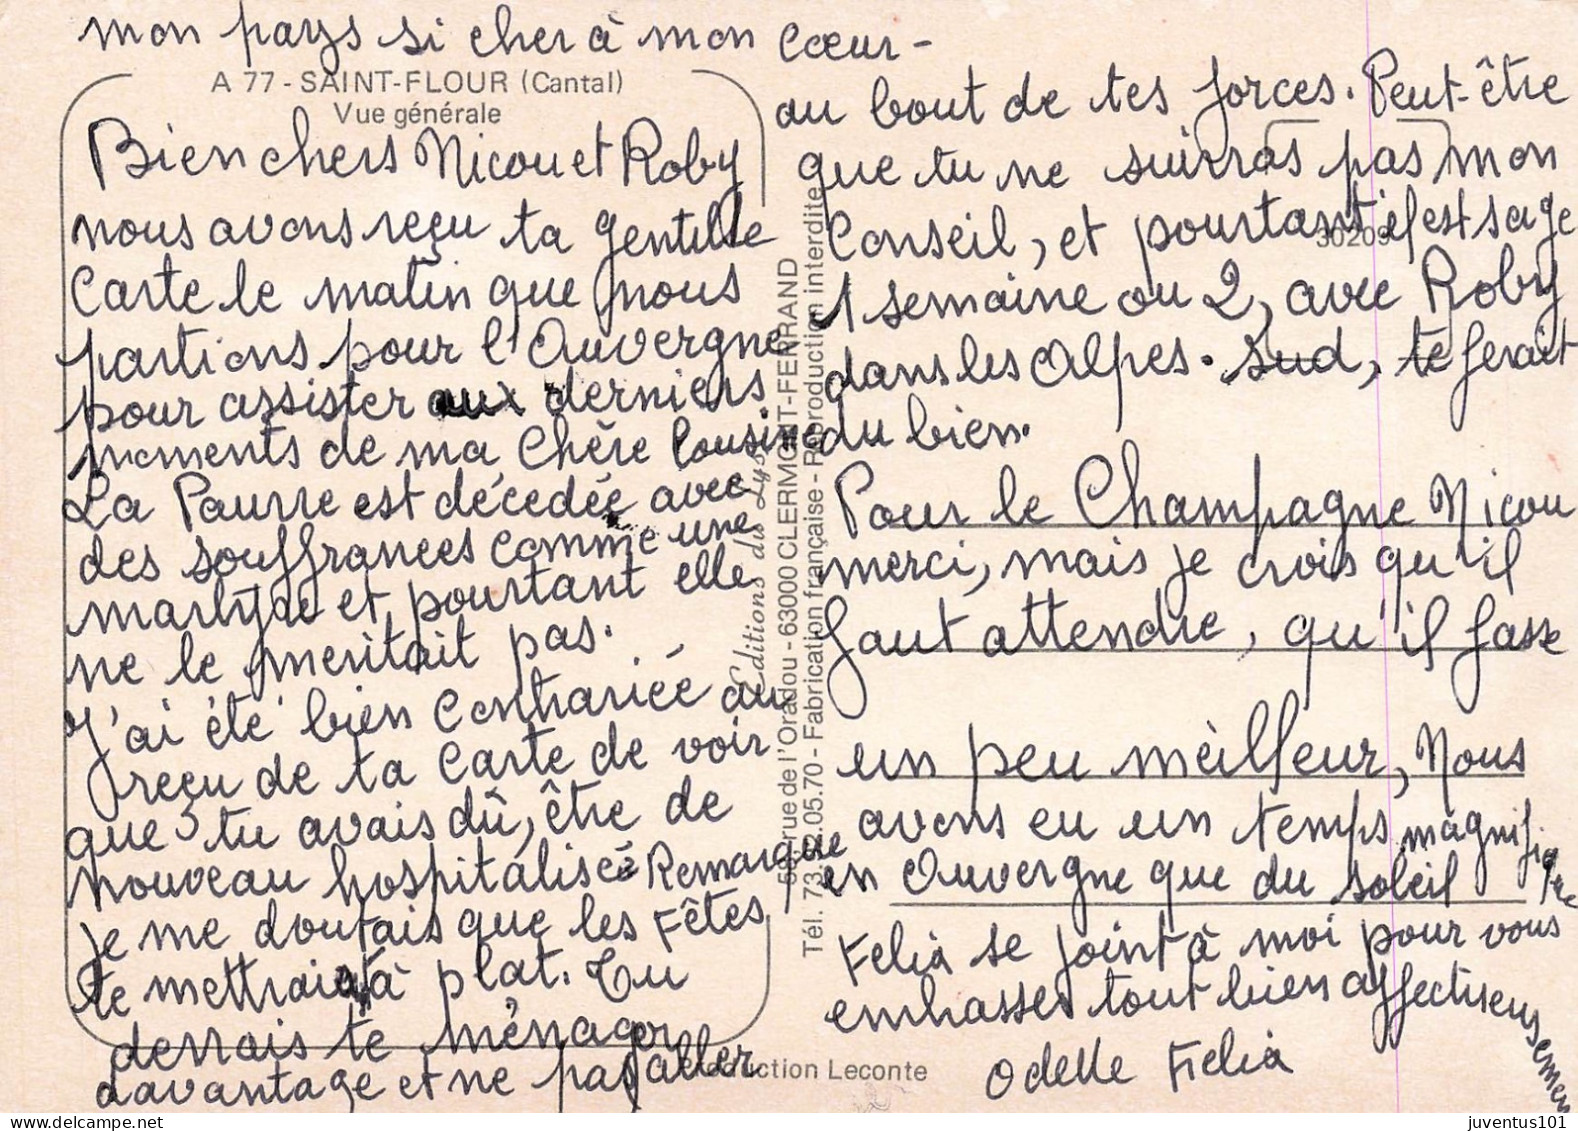 mon pays si cher à mon cœur -
A 77 - SAINT-FLOUR (Cantal)
Vue générale
Bien chers Nicou et Roby
nous avons reçu ta gentille
Carte le matin que nous
partions pour l'Auvergne
pour assister aux derniers
moments de ma chère Cousine
La Pauvre est décedée avec
des souffrances comme une
martyre et pourtant elle
ne le meritait pas.
J'ai été bien contrariée au
reçu de ta carte de voir
que tu avais dû, être de
nouveau hospitalisée Remarque
je me doutais que les Fêtes
te mettrais à plat. Tu
devrais te ménager
davantage et ne pas aller
au bout de tes forces. Peut-être
que tu ne suivras pas mon
Conseil, et pourtant il est sage
1 semaine ou 2, avec Roby
dans les Alpes. Sud, te ferait
du bien.
Pour le Champagne Nicou
merci, mais je crois qu'il
faut attendre, qu'il fasse
un peu meilleur, Nous
avons eu un temps magnifique
en Auvergne que du soleil
Felix se joint à moi pour vous
embasser tout bien affectueusement
Odette Felix
Editions du Lys
63000 CLERMONT-FERRAND
rue de l'Oradou - Tél. 73. .05.70 - Fabrication française - Reproduction interdite
30209
Production Leconte
juventus101